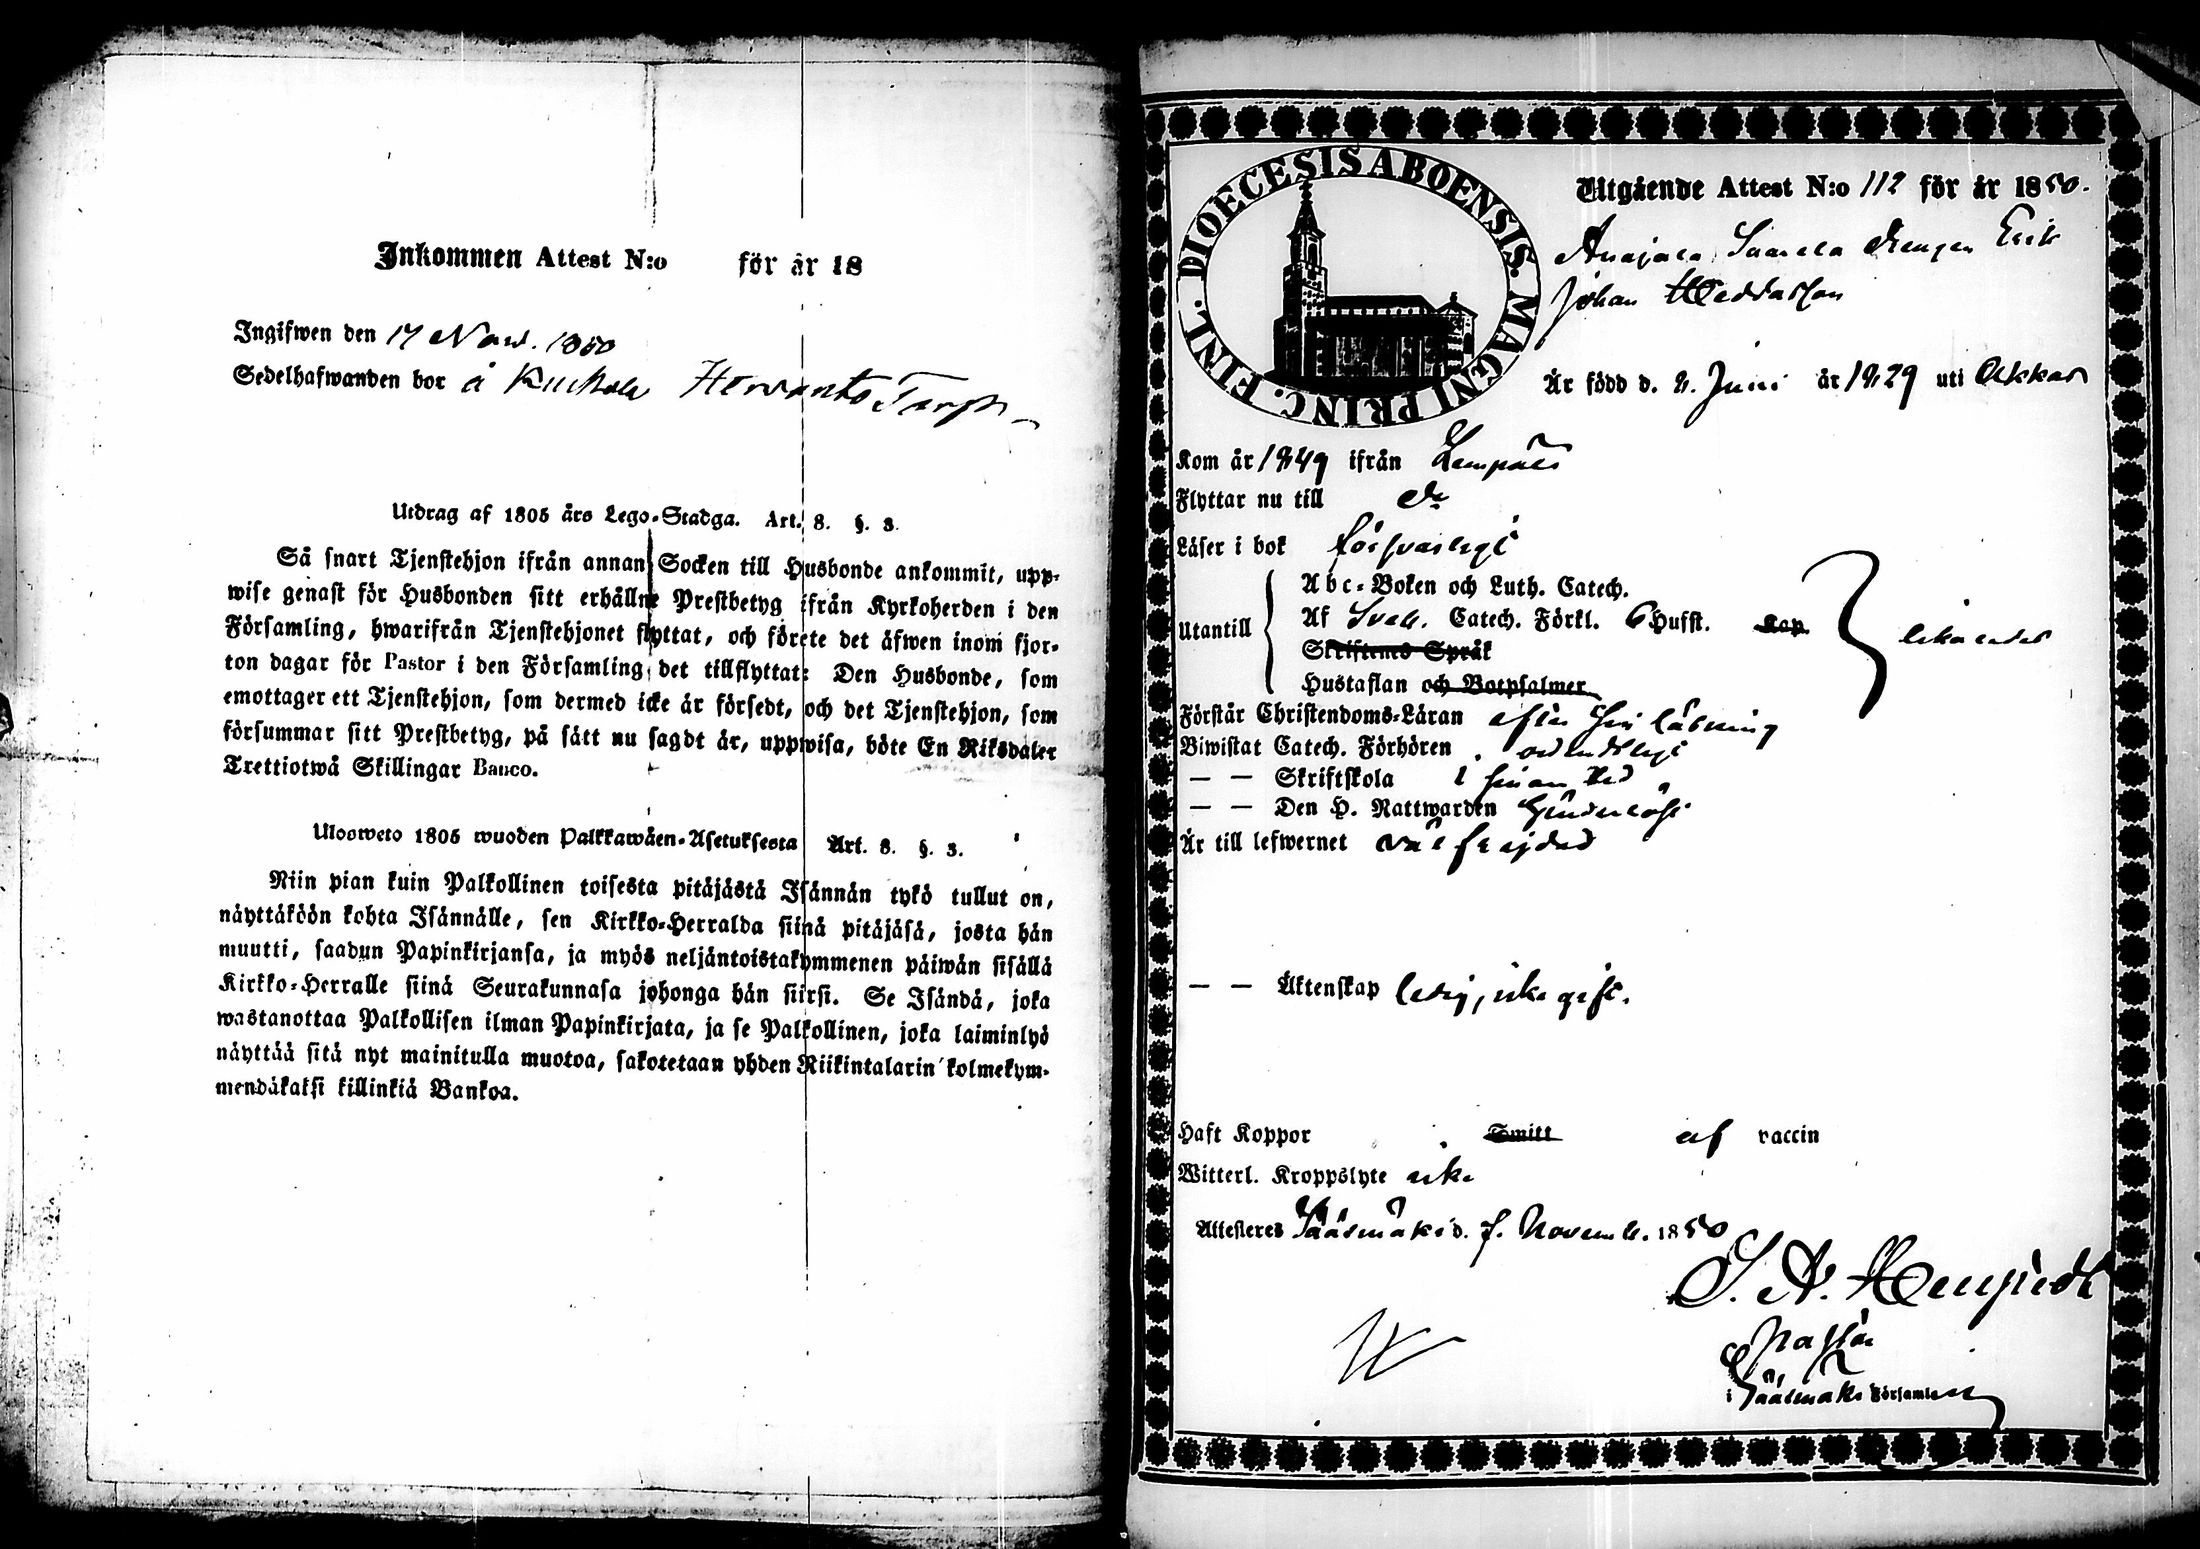 Inkommen Attest N:o för år 18
Ingifwen den 17 Nov. 1850
Sedelhafwanden bor å Kuckola Hervanto Torp
Utdrag af 1805 års Lego-Stadga. Art. 8. §. 3.
Så snart Tjenstehjon ifrån annan Socken till Husbonde ankommit, upp-
wise genast för Husbonden sitt erhållne Prestbetyg ifrån Kyrkoherden i den
Församling, hwarifrån Tjenstehjonet flyttat, och förete det äfwen inom fjor-
ton dagar för Pastor i den Församling det tillflyttat: Den Husbonde, som
emottager ett Tjenstehjon, som dermed icke är försedt, och det Tjenstehjon, som
försummar sitt Prestbetyg, på sätt nu sagdt är, uppwisa, böte En Riksdaler
Trettiotwå Skillingar Banco.
Ulosweto 1805 wuoden Palkkawäen-Asetuksesta Art. 8. §. 3.
Niin pian kuin Palkollinen toisesta pitäjästä Isännän tykö tullut on,
näyttäköön kohta Isännälle, sen Kirkko-Herralda siinä pitäjäsä, josta hän
muutti, saadun Papinkirjansa, ja myös neljäntoistakymmenen päiwän sisällä
Kirkko-Herralle siinä Seurakunnasa johonga hän siirsi. Se Isändä, joka
wastanottaa Palkollisen ilman Papinkirjata, ja se Palkollinen, joka laiminlyö
näyttää sitä nyt mainitulla muotoa, sakotetaan yhden Riikintalarin kolmekym-
mendäkaksi killinkiä Bankoa.
DIOECESIS ABOENSIS. MAGNI PRINC. FINL.
Utgående Attest N:o 112 för år 1850.
Drengen Erik
Johan
Är född d. 2. Juni år 1829 uti Akkas
Kom år 1849 ifrån Lempälä
Flyttar nu till do
Läser i bok försvarligt
Abc-Boken och Luth. Catech.
Utantill Af Sveb. Catech. Förkl. 6 Hufst. Kap.
Skriftenes Språk
Hustaflan och Botpsalmer
Förstår Christendoms-Läran efter sin läsning
Biwistat Catech. Förhören ordentligt
— — Skriftskola i sinom tid
— — Den H. Nattwarden
Är till lefwernet väl frejdad
— — Äktenskap ledig, icke gift.
Haft Koppor Smitt af vaccin
Witterl. Kroppslyte icke
Attesteres Sääsmäki d. 7. Novemb. 1850
Pastor
i Sääsmäki Församling